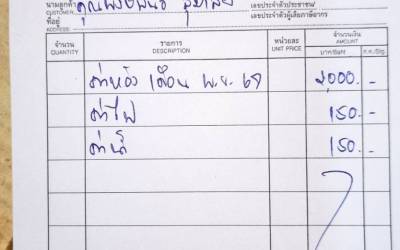 นามลูกค้า คุณ
CUSTOMER
ที่อยู่
ADDRESS
เลขประจำตัวประชาชน/
เลขประจำตัวผู้เสียภาษีอากร
จำนวน รายการ หน่วยละ จำนวนเงิน
QUANTITY DESCRIPTION UNIT PRICE AMOUNT
บาท/Baht
ค่าห้อง เดือน พ.ย. 2,000.-
ค่าไฟ 150.-
ค่าน้ำ 150.-